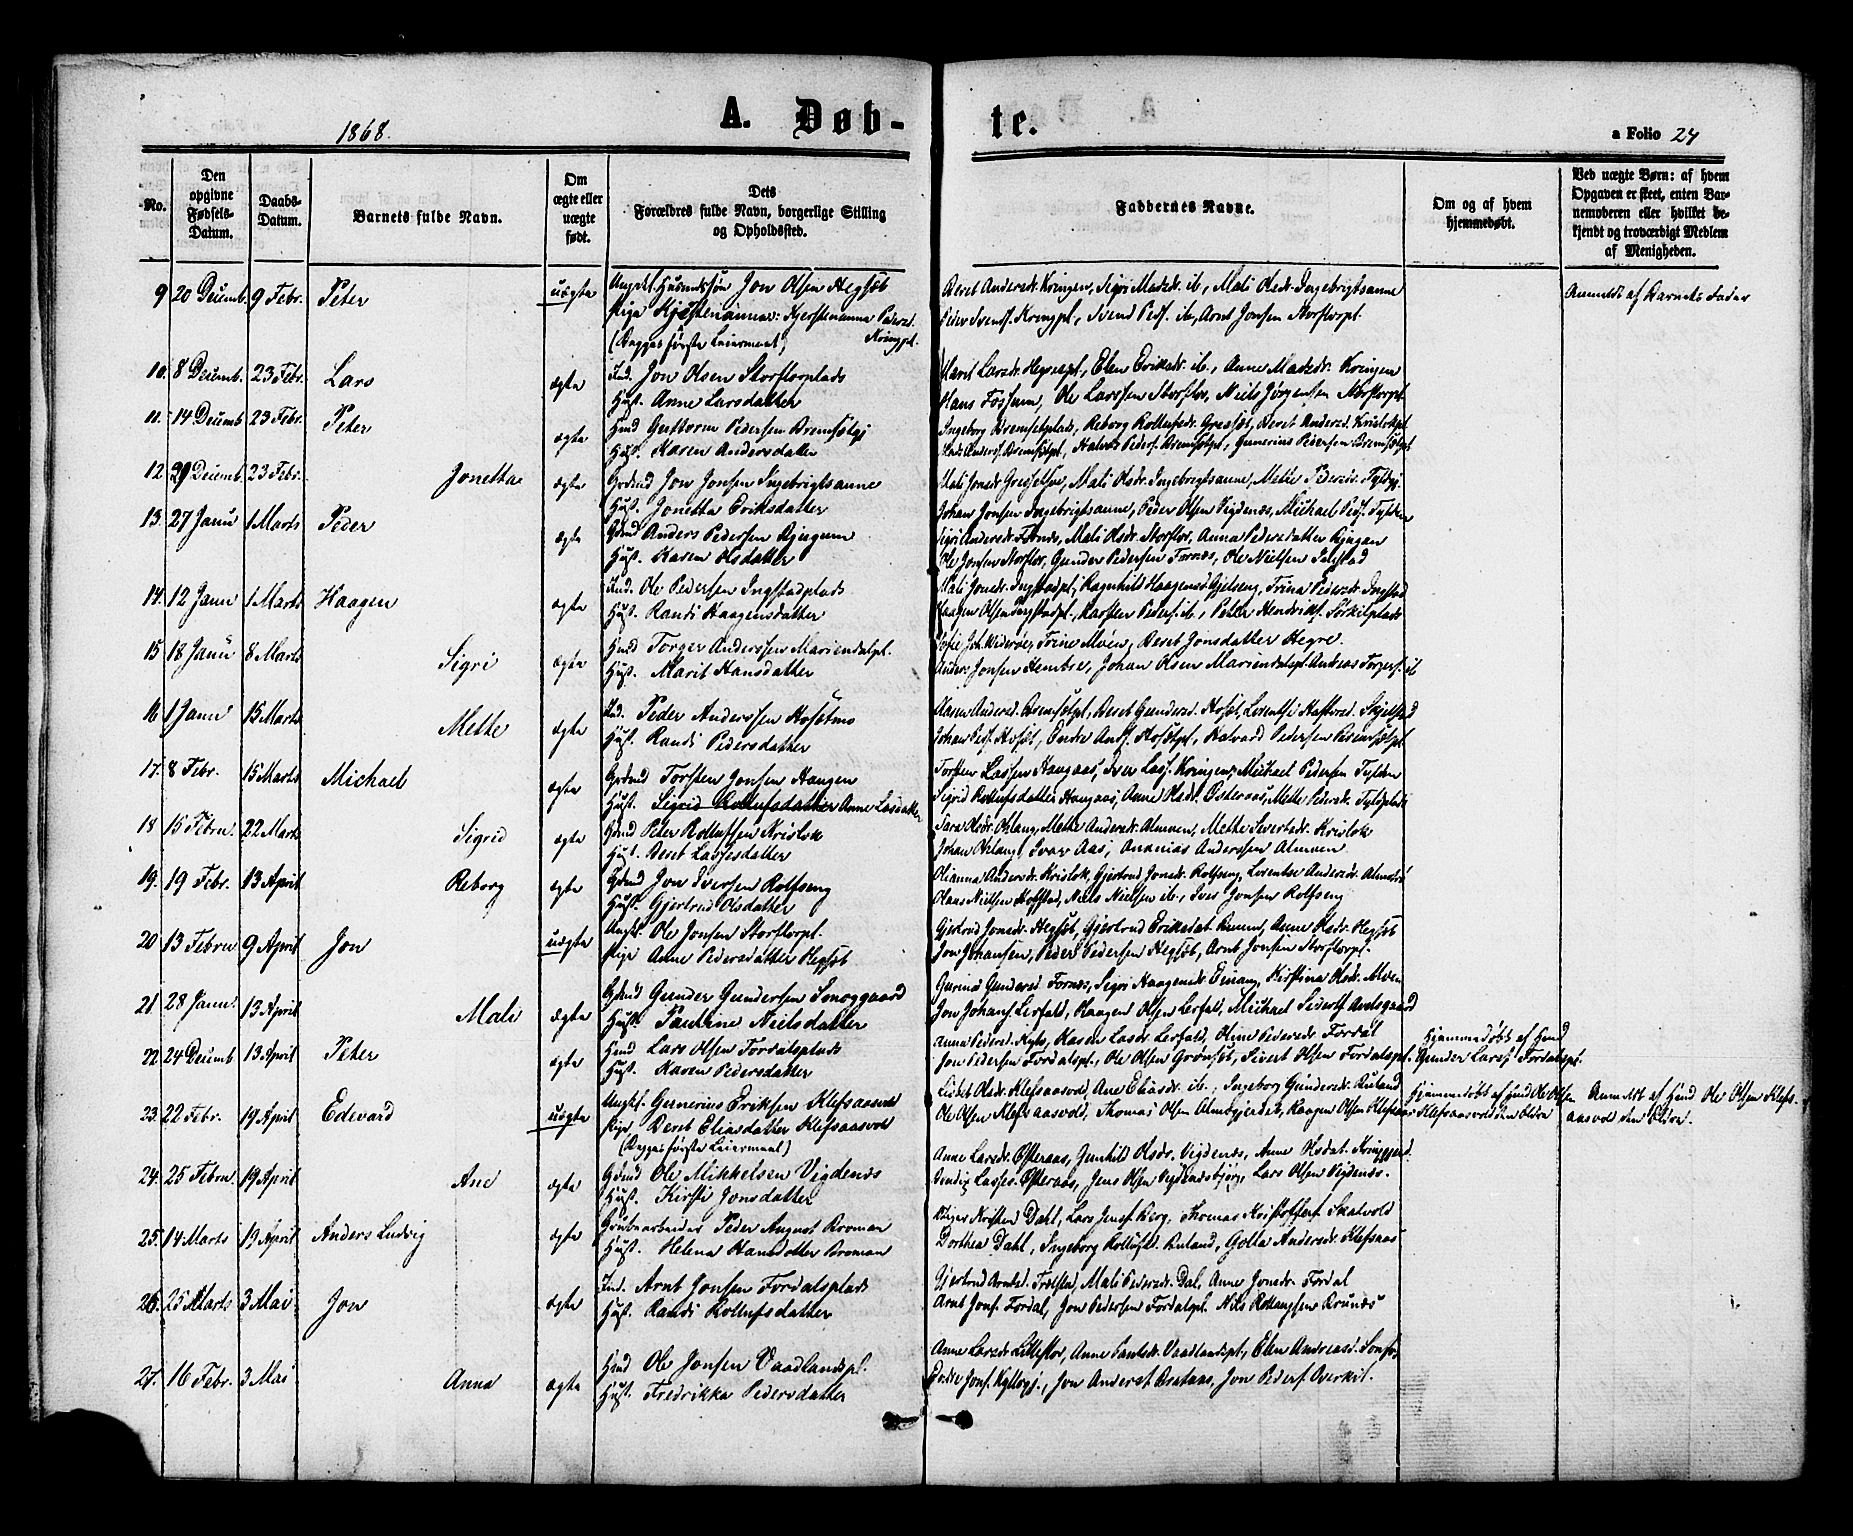 1868.
A. Døb-
te.
a Folio 24
No.
Den opgivne Fødsels-Datum.
Daabs-Datum.
Barnets fulde Navn.
Om ægte eller uægte født.
Dets Forældres fulde Navn, borgerlige Stilling og Opholdssted.
Faddernes Navne.
Om og af hvem hjemmedøbt.
Ved uægte Børn: af hvem Opgaven er skeet, enten Barnemoderen eller hvilket bekjendt og troværdigt Medlem af Menigheden.
9 20 Decemb. 9 Febr. Peter uægte Ungkl. Husmdssøn Jon Olsen Hegsøt
Pige Kjerstenanna Pedersd. Kringpl.
(Begges første Leiermaal)
Beret Andersdr. Kringen, Sigri Madsdr. ib., Mali Olsdr. Ingebrigtsanne
Peder Svends. Kringpl., Svend Peds. ib., Arnt Jonsen Storflorpl.
Anmeldt af Barnets Fader
10. 8 Decemb. 23 Febr. Lars ægte Ind. Jon Olsen Storflorplads
Hust. Anne Larsdatter
Marit Larsdr. Hegsetpl., Elen Eriksdr. ib., Anne Madsdr. Kringen
Hans Fossum, Ole Larssen Storflor, Niels Jørgensen Storflorpl.
11. 14 Decemb. 23 Febr. Peter ægte Hmd Guttorm Pedersen Bremsøtpl
Hust. Karen Andersdatter
Ingeborg Bremsetplads, Reborg Rollufsdr. Græssøt, Beret Andersd. Krislokpl
Mads Anders. Bremsøtpl., Halvor Peders. Bremsøtpl., Gunerius Pedersen Bremsøtpl
12 29 Decemb. 23 Febr. Jonetta ægte Grdmd Jon Jonsen Ingebrigtsanne
Hust. Jonetta Eriksdatter
Mali Jonsdr. Græsselhoe, Mali Olsdr. Ingebrigtsanne, Mette Pedersdr. Fyldpl.
Johan Jonsen Ingebrigtsanne, Peder Olsen Vigdenæs, Michael Peds. Fylden
13. 27 Janu 1 Marts Peder ægte Grdmd Anders Pedersen Kjugum
Hust. Karen Olsdatter
Sigri Andersdr. Fornæs, Mali Olsdr. Storflor, Anna Pedersdatter Kjugan
Ole Jonsen Storflor, Gunder Pedersen Fornæs, Ole Nielsen Julstad
14. 12 Janu 1 Marts Haagen ægte Ind. Ole Pedersen Ingstadplads
Hust. Randi Haagensdatter
Mali Jonsdr. Ingstadpl., Ragnhild Haagensd. Gjelseng, Trina Pedersdr. Ingstad
Haagen Olsen Ingstadpl., Karsten Peders. ib., Petter Hendriks. Torkilplads
15 18 Janu 8 Marts Sigri ægte Hmd Torger Anderssen Mariendalpl.
Hust. Marit Hansdatter
Sofie Joh. Mederøe, Trine Moen, Beret Jonsdatter Hegre.
Anders Jonsen Hembre, Johan Olsen Mariendalspl. Andreas Torgers. ib
16 1 Janu 15 Marts Mette ægte Ind. Peder Anderssen Hosetmo
Hust. Randi Pedersdatter
Karen Andersd. Bremsøtpl., Beret Gundersd. Hosøt, Lorentse Hastvesd. Skjelstad
Johan Peds. Hosøt, Endre Ands. Hosøtpl., Halvard Pedersen Bremsøtpl
17. 8 Febr. 15 Marts Michael ægte Grdmd Torsten Jonsen Haugen
Hust. Sigrid Rollufsdatter Anne Lasdatter
Torsten Lassen Haugaas, Iver Lass. Kringen, Michael Pedersen Fylden
Sigrid Rollufsdatter Haugaas, Anne Olsdr. Østeraas, Mette Pedersdr. Fyldplads
18 15 Febru. 22 Marts Sigrid ægte Grdmd Peter Rolluffsen Krislok
Hust. Beret Lassesdatter
Sara Olsdr. Øvlang, Mette Andersdr. Almoen, Mette Sivertsdr. Krislok
Johan Øvlang, Ivar Aas, Ananias Anderssen Almoen
19. 19 Febr. 13 April Reborg ægte Grdmd Jon Iversen Rolfseng
Hust. Gjertrud Olsdatter
Olianna Andersdr. Krislok, Gjertrud Jonsdr. Rolfseng, Lorentse Andersdr. Almoen
Olaus Nielsen Hofstad, Niels Nielsen ib., Iver Jonsen Rolfseng
20 13 Febru 9 April Jon uægte Ungkl. Ole Jonsen Storflorpl.
Pige Anne Pedersdatter Hegsøt
Gjertrud Jonsdr. Hegsøt, Gjertrud Eriksdat. Brenn, Anne Olsdr. Hegsøt
Jon Johansen, Peder Pedersen Hegsøt, Arnt Jonsen Storflorpl.
21. 28 Janu. 13 April Mali ægte Grdmd Gunder Gundersen Sonoggaard
Hust. Pauline Nielsdatter
Gurine Gundersd. Fornæs, Sigri Haagensdr. Einang, Kirstina Olsdr. Moen
Jon Johans. Lerfald, Haagen Olsen Lerfald, Michael Siverts. Avelsgaard
22. 24 Decemb 13. April Peter ægte Hmd Lars Olsen Fordalsplads
Hust. Karen Pedersdatter
Anna Pedersd. Hyts, Karen Lasdr. Lerfald, Oline Pedersdr. Fordal
Jon Pedersen Fordalspl., Ole Olsen Grønsøt, Sivert Olsen Fordalspl.
Hjemmedøbt af Hmd
Gunder Lars. Fordalspl.
23. 22 Febr. 19 April Edevard uægte Ungkl. Gunerius Eriksen Klefsaasvold
Pige Beret Eliasdatter Klefsaasvold
(Begges første Leiermaal)
Lisbet Olsdr. Klefsaasvol, Ane Eliasdr. ib., Ingeborg Gundersdr. Ruland
Ole Olsen Klefsaasvold, Thomas Olsen Almogjerdet, Haagen Olsen Klefsaas
Hjemmedøbt af Hmd Ole Olsen
Klefsaasvold den Eldre
Anmeldt af Hmd Ole Olsen Klefs-
aasvol den Eldre.
24. 25 Febru 19 April Ane ægte Grdmd Ole Mikkelsen Vigdenæs
Hust. Kirsti Jonsdatter
Anne Larsdr. Østeraas, Gunhild Olsdr. Vigdenæs, Anne Olsdat. Kringgjerd.
Endrig Lasses. Østeraas, Jens Olsen Vigdenæsbjørg, Lars Olsen Vigdenæs.
25. 14 Marts 19 April Anders Ludvig ægte Grubearbeider Peder August Broman
Hust. Helena Hansdotter Broman
Stiger Kristen Dahl, Lars Jens. Berg, Thomas Kristoffers. Skatvold
Dorthea Dahl, Ingeborg Rollufsd. Ruland, Golla Andersdr. Klefsaas
26. 25 Marts 3 Mai Jon ægte Ind. Arnt Jonsen Fordalsplads
Hust. Randi Rollufsdatter
Gjertrud Arntsd. Trøstad, Mali Pedersdr. Dal, Anne Jonsdr. Fordal
Arnt Jons. Fordal, Jon Pedersen Fordalspl. Nils Rollaugsen Brunæs
27. 16 Febr. 3 Mai Anna ægte Hmd Ole Jonsen Vaadlandspl.
Hust. Fredrikka Pedersdatter
Anne Larsdr. Litleflor, Anne Paulsdr. Vaadlandspl., Elen Andreasd. Sonfos
Endre Jons. Kyllogj., Jon Anderst. Brataas, Jon Peders. Overkil.